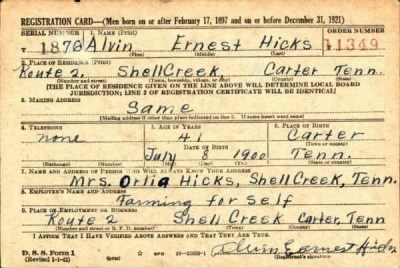 REGISTRATION CARD—(Men born on or after February 17, 1897 and on or before December 31, 1921)
SERIAL NUMBER 1. NAME (Print) ORDER NUMBER
T 1876 Alvin Ernest Hicks 11349
(First) (Middle) (Last)
2. PLACE OF RESIDENCE (Print)
Route 2. Shell Creek, Carter Tenn.
(Number and street) (Town, township, village, or city) (County) (State)
[THE PLACE OF RESIDENCE GIVEN ON THE LINE ABOVE WILL DETERMINE LOCAL BOARD
JURISDICTION; LINE 2 OF REGISTRATION CERTIFICATE WILL BE IDENTICAL]
3. MAILING ADDRESS
Same
[Mailing address if other than place indicated on line 2. If same insert word same]
4. TELEPHONE 5. AGE IN YEARS 6. PLACE OF BIRTH
none 41 Carter
DATE OF BIRTH (Town or county)
July 8 1900 Tenn.
(Exchange) (Number) (Mo.) (Day) (Yr.) (State or country)
7. NAME AND ADDRESS OF PERSON WHO WILL ALWAYS KNOW YOUR ADDRESS
Mrs. Orlia Hicks, Shell Creek, Tenn.
8. EMPLOYER'S NAME AND ADDRESS
Farming for Self
9. PLACE OF EMPLOYMENT OR BUSINESS
Route 2 Shell Creek Carter, Tenn
(Number and street or R. F. D. number) (Town) (County) (State)
I AFFIRM THAT I HAVE VERIFIED ABOVE ANSWERS AND THAT THEY ARE TRUE.
D. S. S. Form 1
(Revised 1-1-42) GPO Alvin Earnest Hicks